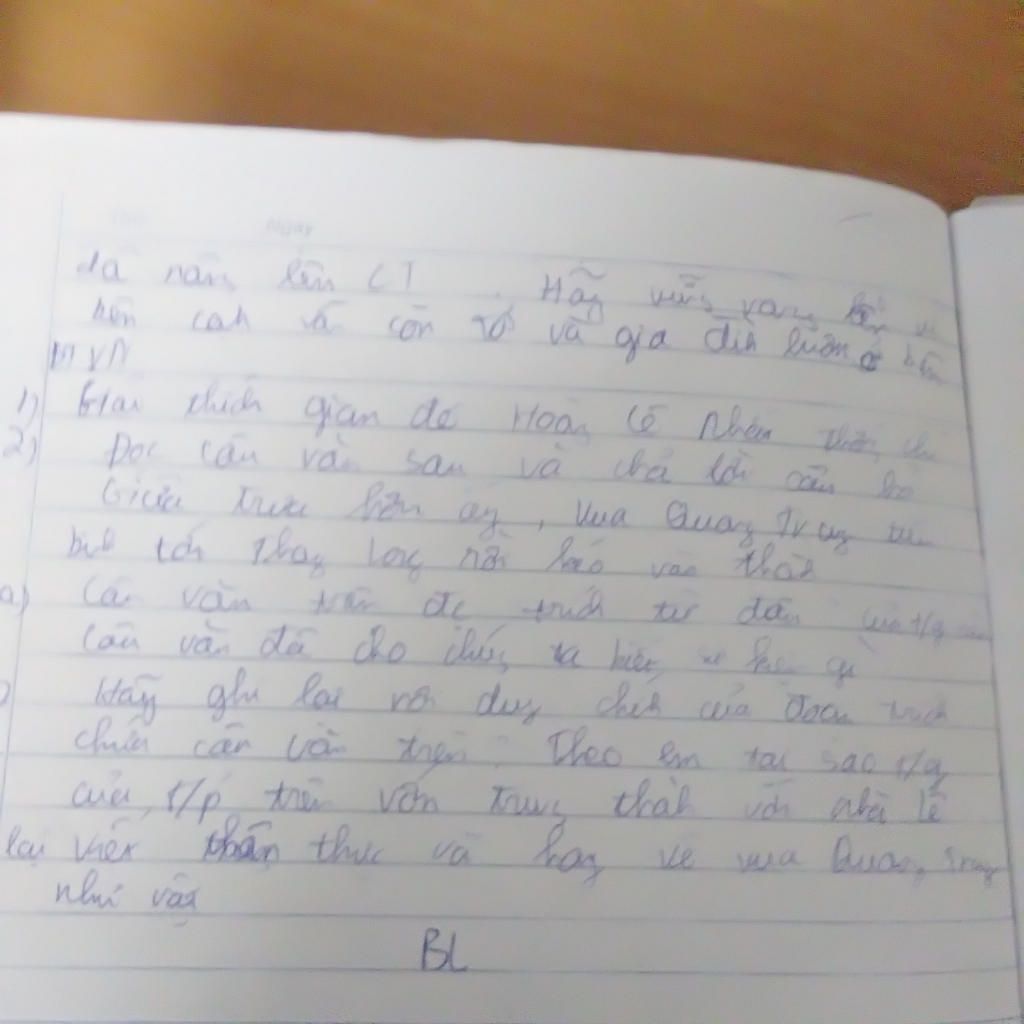 Ngày
đã nâng lên CT. Hãy vững vàng
bên cạh vẫ còn tớ và gia đìh luôn ở bên
BTVN
1) Giải thích gian đề Hoàng Lê Nhất thống chí
2) Đọc câu văn sau và chả lời câu hỏi
Giữa trưa hôm ấy, vua Quang Trung
bih tới Thăg Long rồi kéo vào thàh
a) Câu văn trên đc trích từ đâu của t/g
Câu văn đã cho chúg ta biết sự kiện gì
Hãy ghi lại nội dug chíh của đoạn trích
chứa câu văn trên. Theo em tại sao t/g
của t/p trên vốn trug thàh với nhà Lê
lại viết thần thực và hay về vua Quang Trung
như vậy
BL